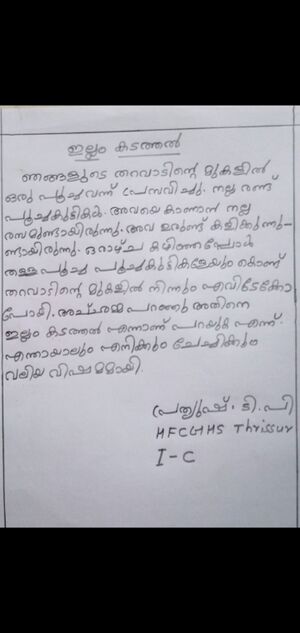 ഇല്ലം കടത്തൽ
ഞങ്ങളുടെ തറവാടിന്റെ മുകളിൽ
ഒരു പൂച്ച വന്ന് പ്രസവിച്ചു. നല്ല രണ്ട്
പൂച്ചകുട്ടികൾ. അവയെ കാണാൻ നല്ല
രസമുണ്ടായിരുന്നു. അവ ഉരുണ്ട് കളിക്കുന്നു-
ണ്ടായിരുന്നു. ഒരാഴ്ച കഴിഞ്ഞപ്പോൾ
തള്ള പൂച്ച പൂച്ചകുട്ടികളേയും കൊണ്ട്
തറവാടിന്റെ മുകളിൽ നിന്നും എവിടേക്കോ
പോയി. അച്ഛമ്മ പറഞ്ഞു അതിനെ
ഇല്ലം കടത്തൽ എന്നാണ് പറയുക എന്ന്.
എന്തായാലും എനിക്കും ചേച്ചിക്കും
വലിയ വിഷമമായി.
പ്രത്യുഷ്. ടി. പി
HFCGHS Thrissur
I-C